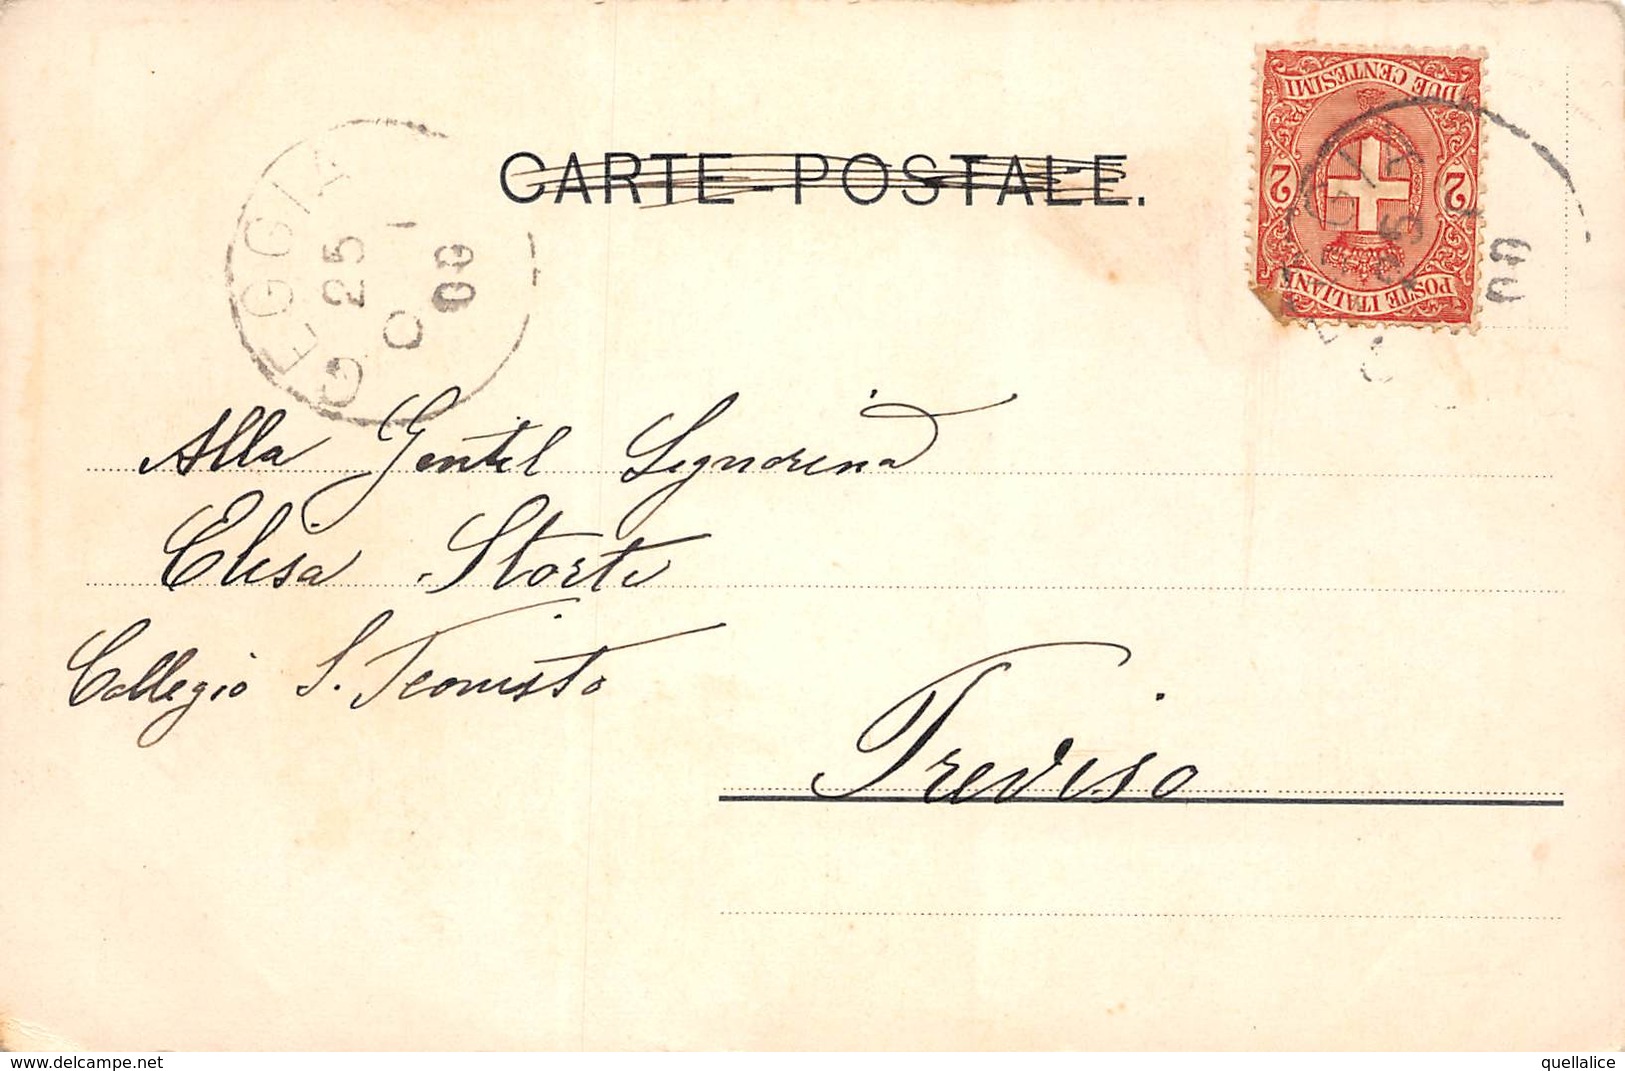 CARTE-POSTALE.
CEGGIA
25
00
DUE CENTESIMI
2 2
POSTE ITALIANE
00
Alla Gentil Signorina
Elisa Storti
Collegio S. Teonisto
Treviso
delcampe.net
quellalice